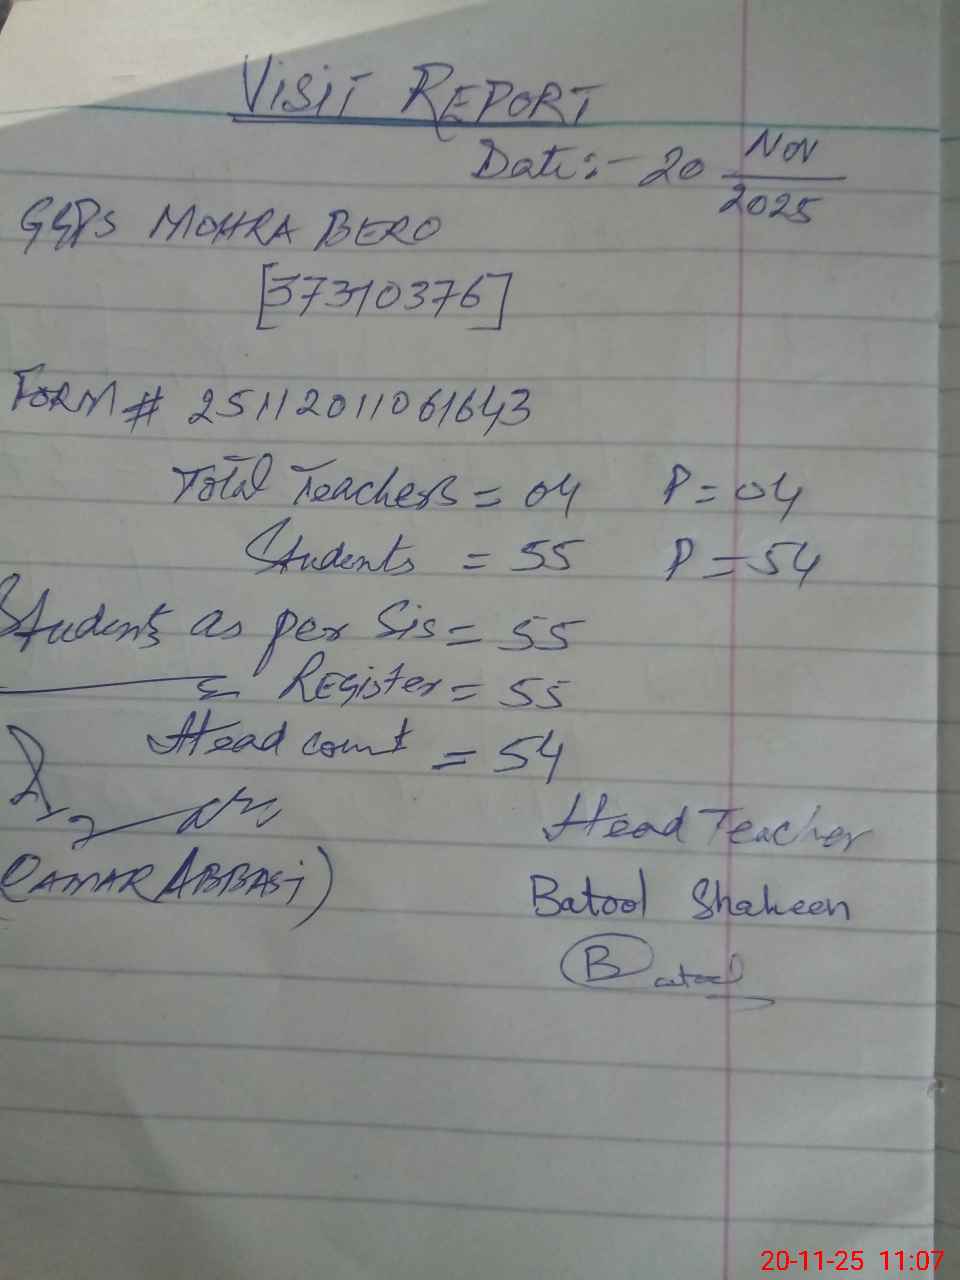 VISIT REPORT
Date:- 20 Nov
2025
GGPS MOHRA BERO
[37310376]
FORM # 25112011061643
Total Teachers = 04 P = 04
Students = 55 P = 54
Students as per Sis = 55
Register = 55
Head count = 54
(QAMAR ABBASi)
Head Teacher
Batool Shaheen
Batool
20-11-25 11:07